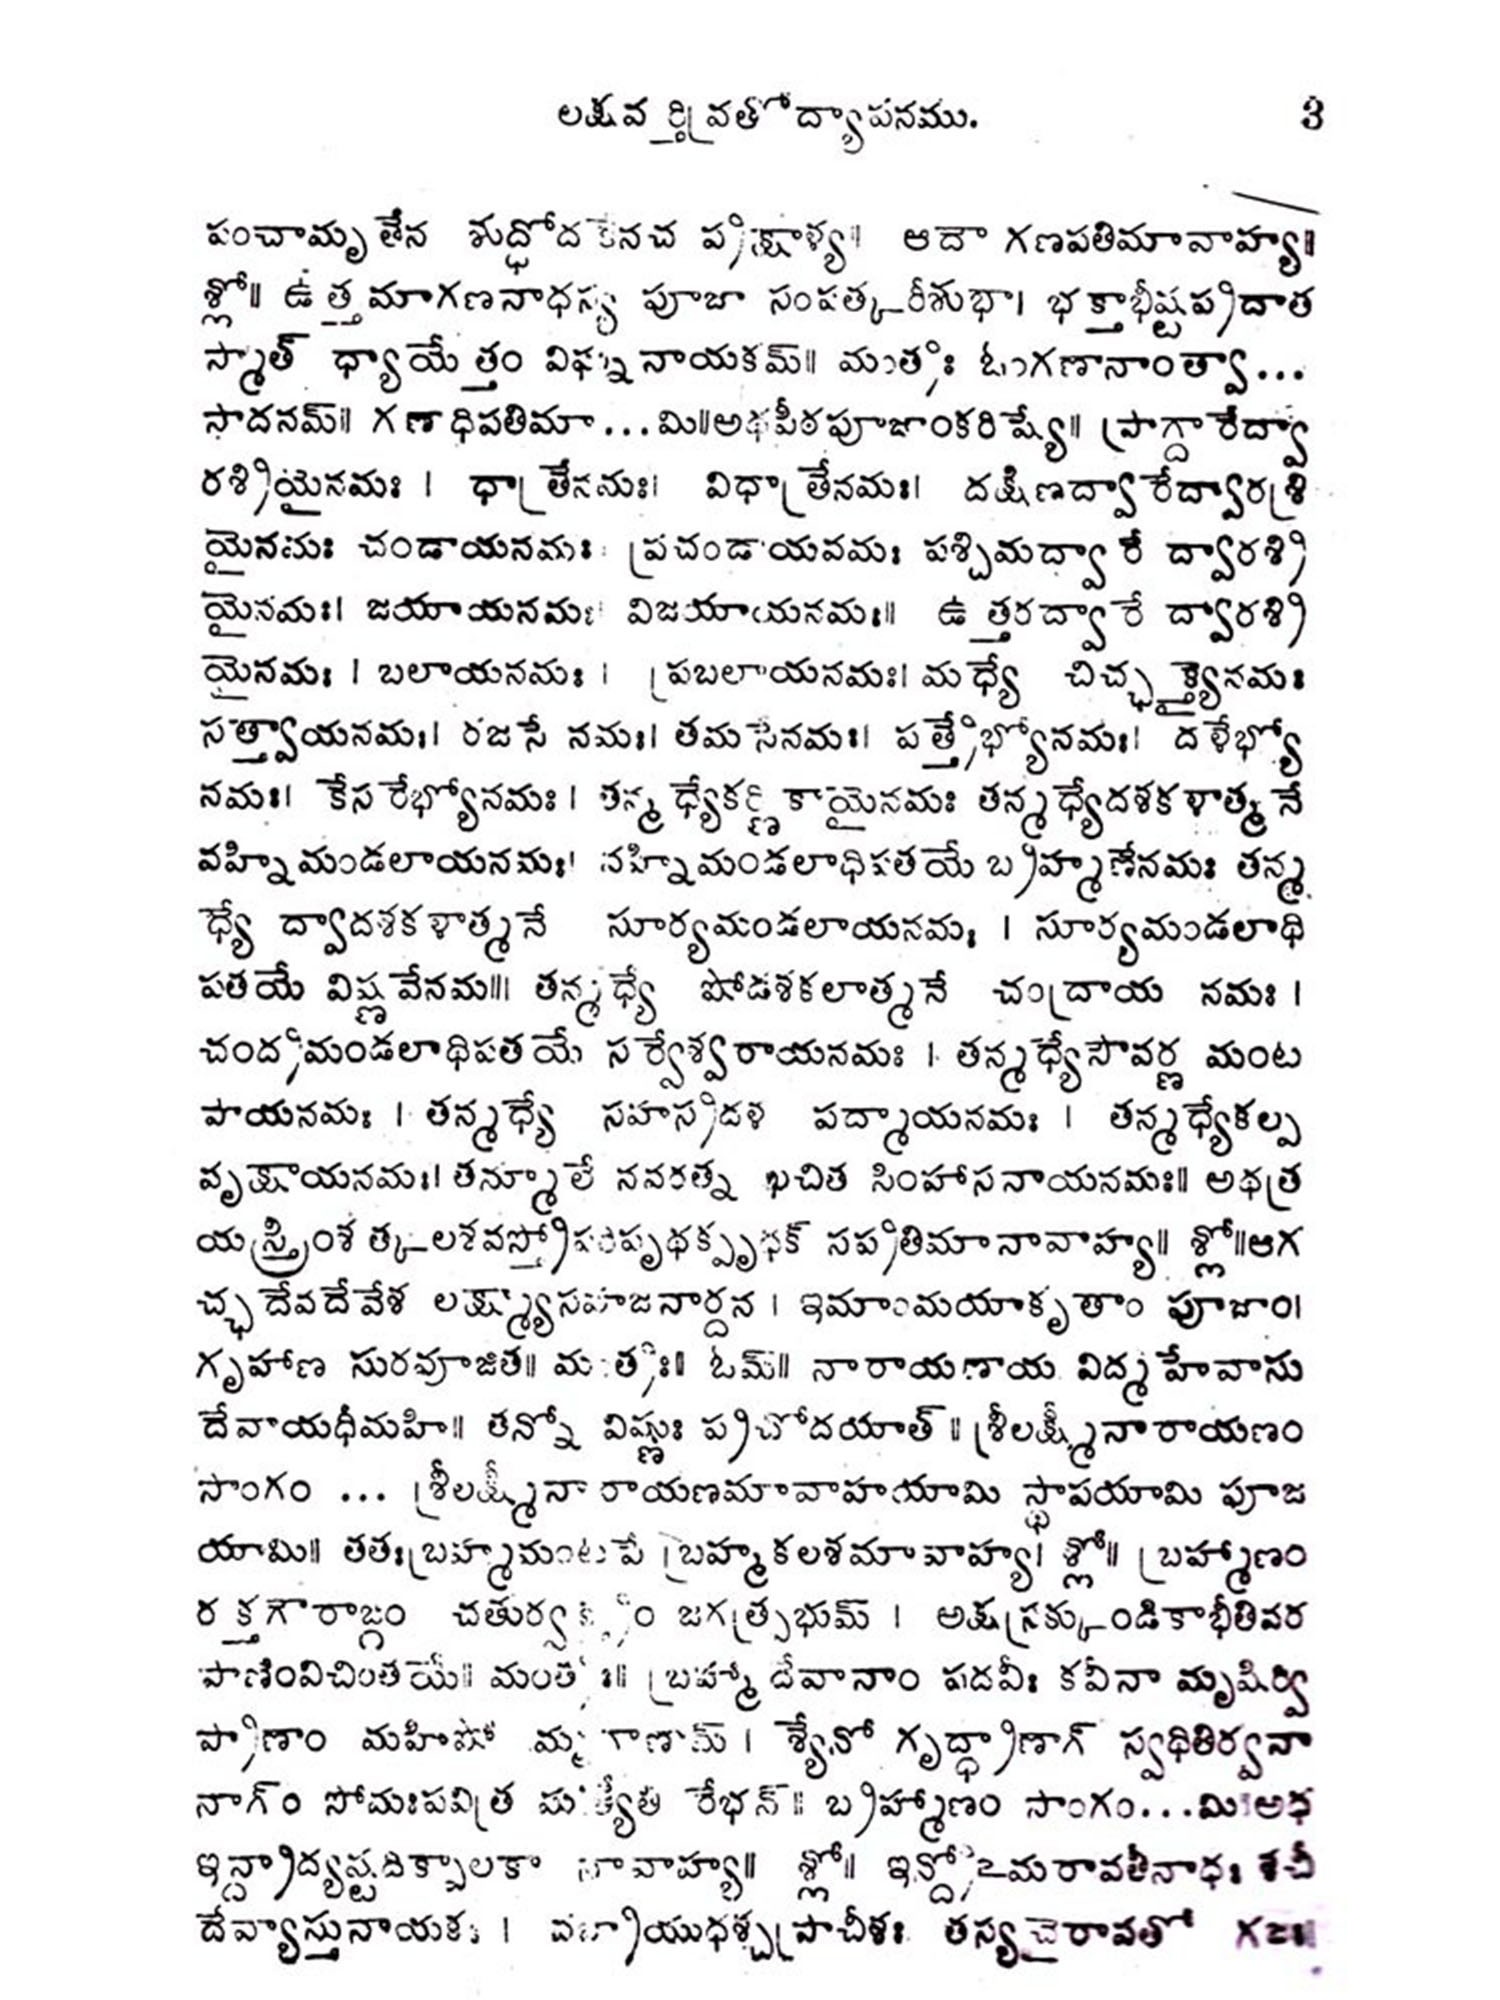 లక్షవర్తివ్రతోద్యాపనము. 3
పంచామృతేన శుద్ధోదకేనచ ప్రక్షాళ్య॥ ఆదౌ గణపతిమావాహ్య॥
శ్లో॥ ఉత్తమాగణనాధస్య పూజా సంపత్కరీశుభా। భక్తాభీష్టప్రదాత
స్మాత్ ధ్యాయేత్తం విఘ్ననాయకమ్॥ మంత్రః ఓంగణానాంత్వా...
సాదనమ్॥ గణాధిపతిమా...మి॥అథపీఠపూజాంకరిష్యే॥ ప్రాగ్ద్వారేద్వా
రశ్రియైనమః । ధాత్రేనమః। విధాత్రేనమః। దక్షిణద్వారేద్వారశ్రి
యైనమః చండాయనమః। ప్రచండాయనమః పశ్చిమద్వారే ద్వారశ్రి
యైనమః। జయాయనమః। విజయాయనమః॥ ఉత్తరద్వారే ద్వారశ్రి
యైనమః । బలాయనమః । ప్రబలాయనమః। మధ్యే చిచ్ఛక్త్యైనమః
సత్త్వాయనమః। రజసే నమః। తమసేనమః। పత్త్రేభ్యోనమః। దళేభ్యో
నమః। కేసరేభ్యోనమః । తన్మధ్యేకర్ణికాయైనమః తన్మధ్యేదశకళాత్మనే
వహ్నిమండలాయనమః। వహ్నిమండలాధిపతయే బ్రహ్మణేనమః తన్మ
ధ్యే ద్వాదశకళాత్మనే సూర్యమండలాయనమః । సూర్యమండలాధి
పతయే విష్ణవేనమః॥ తన్మధ్యే షోడశకలాత్మనే చంద్రాయ నమః ।
చంద్రమండలాధిపతయే సర్వేశ్వరాయనమః । తన్మధ్యేసౌవర్ణ మంట
పాయనమః । తన్మధ్యే సహస్రదళ పద్మాయనమః । తన్మధ్యేకల్ప
వృక్షాయనమః। తన్మూలే నవరత్న ఖచిత సింహాసనాయనమః॥ అథత్ర
యస్త్రింశత్కలశవస్త్రోపరిపృథక్పృథక్ సప్రతిమానావాహ్య॥ శ్లో॥ఆగ
చ్ఛదేవదేవేశ లక్ష్మ్యాసహజనార్దన । ఇమాంమయాకృతాం పూజాం।
గృహాణ సురపూజిత॥ మంత్రః॥ ఓమ్॥ నారాయణాయ విద్మహేవాసు
దేవాయధీమహి॥ తన్నో విష్ణుః ప్రచోదయాత్॥ శ్రీలక్ష్మీనారాయణం
సాంగం ... శ్రీలక్ష్మీనారాయణమావాహయామి స్థాపయామి పూజ
యామి॥ తతఃబ్రహ్మమంటపే బ్రహ్మకలశమావాహ్య। శ్లో॥ బ్రహ్మాణం
రక్తగౌరాఙ్గం చతుర్వక్త్రం జగత్ప్రభుమ్ । అక్షస్రక్కుండికాభీతివర
పాణింవిచింతయే॥ మంత్రః॥ బ్రహ్మా దేవానాం పదవీః కవీనా మృషిర్వి
ప్రాణాం మహిషో మృగాణామ్ । శ్యేనో గృధ్రాణాగ్ స్వధితిర్వనా
నాగ్ం సోమఃపవిత్ర మత్యేతి రేభన్॥ బ్రహ్మాణం సాంగం...మి।అథ
ఇన్ద్రాద్యష్టదిక్పాలకా నావాహ్య॥ శ్లో॥ ఇన్ద్రోఽమరావతీనాధః శచీ
దేవ్యాస్తునాయకః । వజ్రాయుధశ్చప్రాచీశః తస్యచైరావతో గజః॥